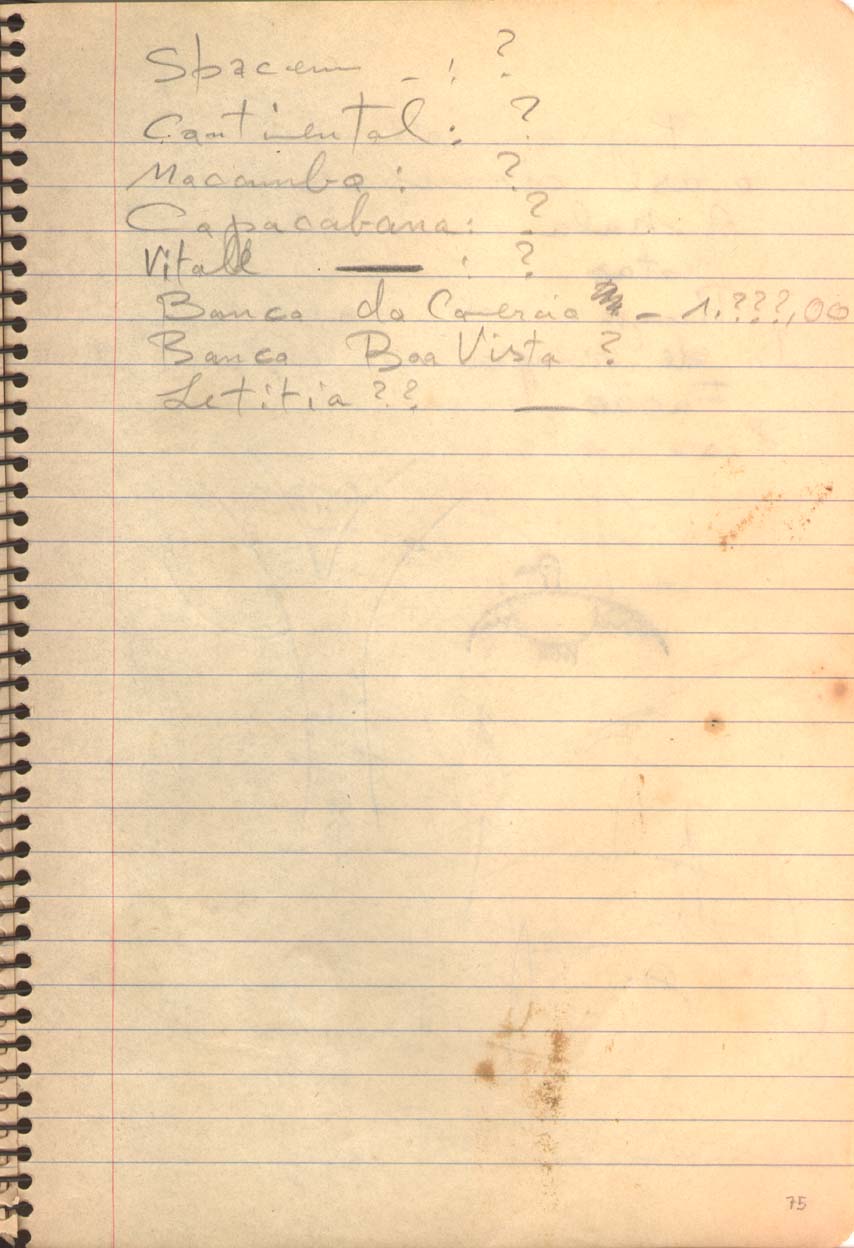 Sbacem - : ?
Continental : ?
Mocambo : ?
Copacabana : ?
Vitale — : ?
Banco do Comercio - 1.???,00
Banco Boa Vista ?
Letitia ?? —
75